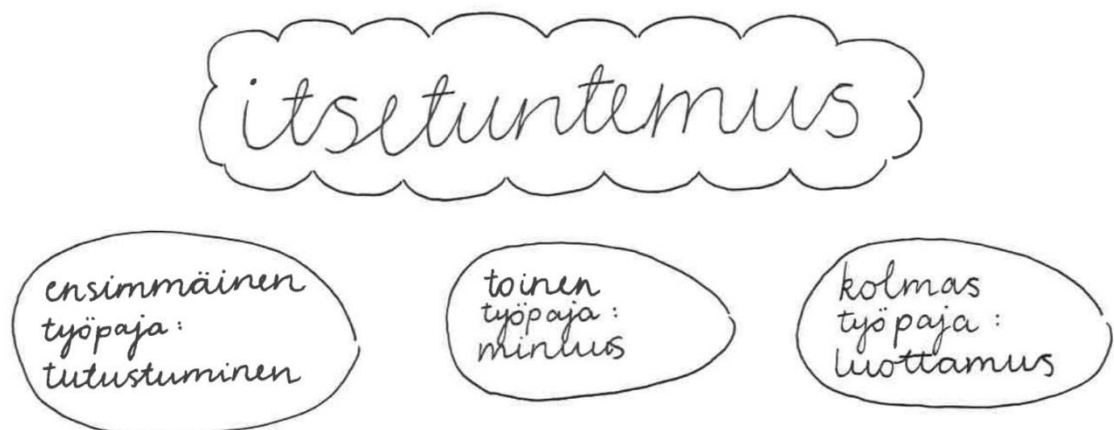 itsetuntemus
ensimmäinen
työpaja:
tutustuminen
toinen
työpaja:
minuus
kolmas
työpaja:
luottamus